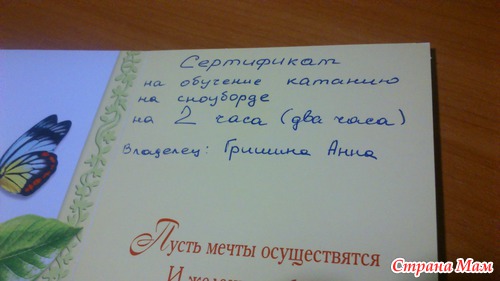 Сертификат
на обучение катанию
на сноуборде
на 2 часа (два часа)
Владелец: Гришина Анна
Пусть мечты осуществятся
Страна Мам